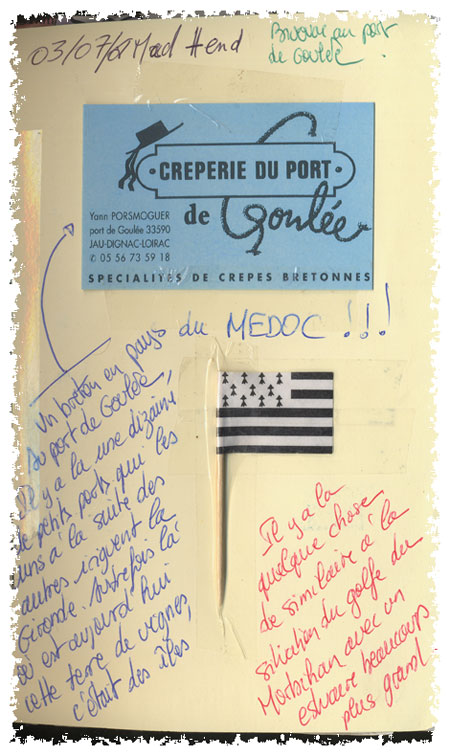 03/07/ Mad Hend
au port
de Goulée
CREPERIE DU PORT
de Goulée
Yann PORSMOGUER
port de Goulée 33590
JAU-DIGNAC-LOIRAC
✆ 05 56 73 59 18
SPECIALITES DE CREPES BRETONNES
Un breton en pays du MEDOC !!!
Au port de Goulée,
Il y a là une dizaine
de petits ports qui les
uns à la suite des
autres irriguent la
Gironde. Autrefois là
où est aujourd'hui
cette terre de vignes,
c'était des îles
Il y a là
quelque chose
de similaire à la
situation du golfe du
Morbihan avec un
estuaire beaucoup
plus grand